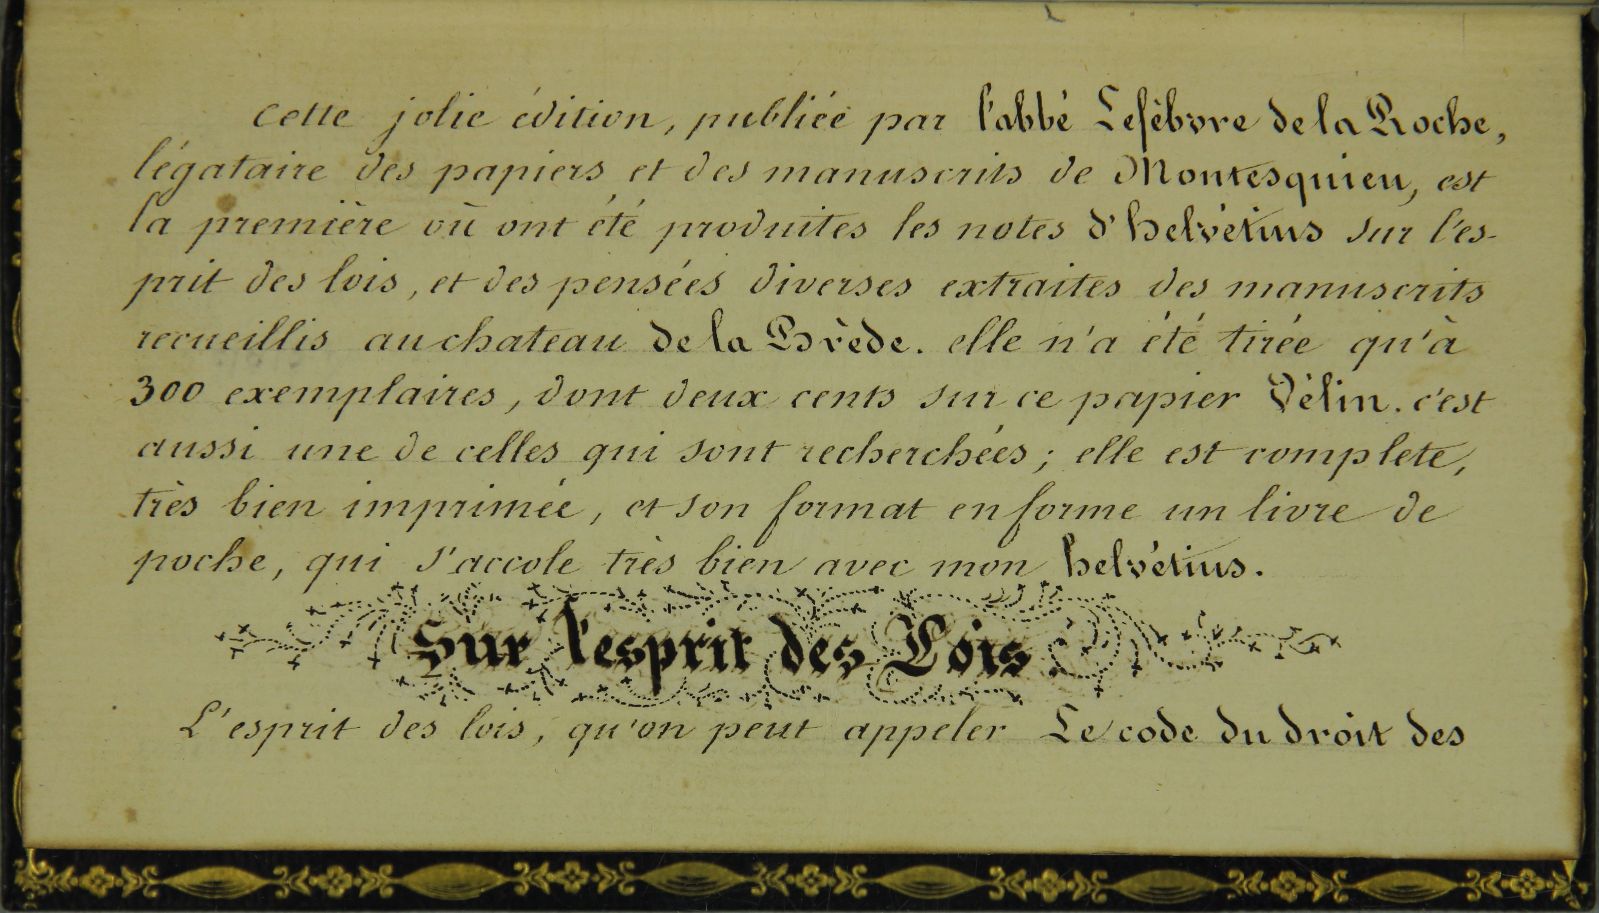 Cette jolie édition, publiée par l'abbé Lefèbvre de la Roche,
légataire des papiers et des manuscrits de Montesquieu, est
la première où ont été produites les notes d'helvétius sur l'es-
prit des lois, et des pensées diverses extraites des manuscrits
recueillis au chateau de la Brède. elle n'a été tirée qu'à
300 exemplaires, dont deux cents sur ce papier Vélin. c'est
aussi une de celles qui sont recherchées; elle est complete,
très bien imprimée, et son format en forme un livre de
poche, qui s'accole très bien avec mon helvétius.
Sur l'esprit des Lois.
L'esprit des lois, qu'on peut appeler Le code du droit des